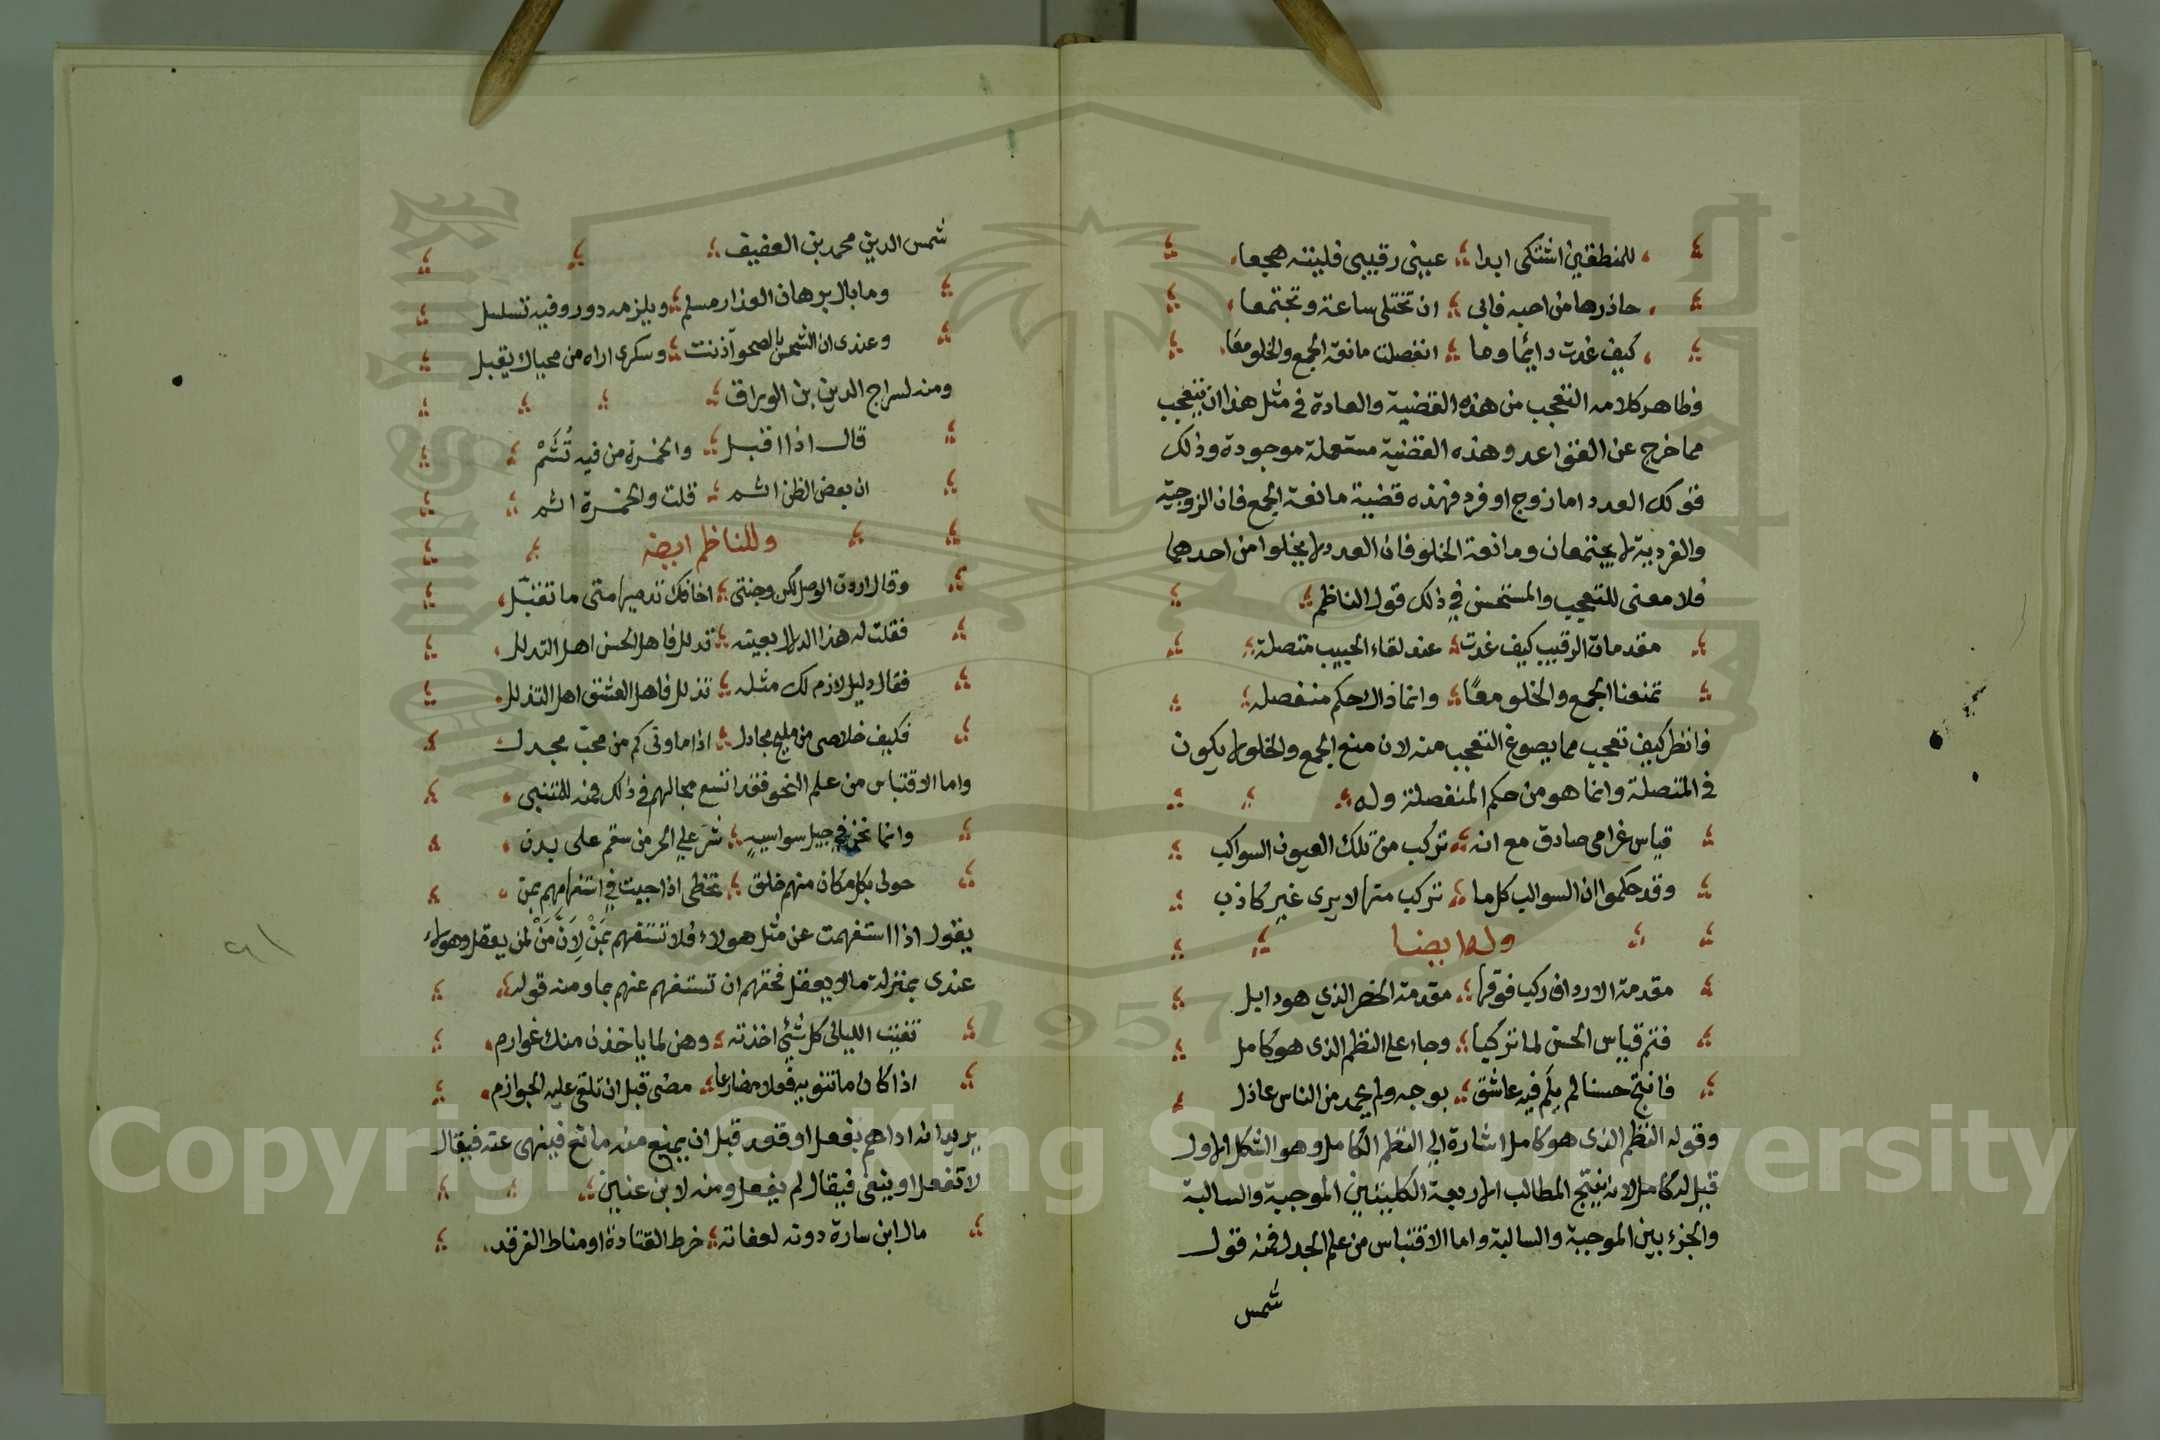 للمنطقيين اشتكى ابدا ؛ عيني رقيبي فليته هجعا
حاذرها من احبه فابى ؛ ان تختلى ساعة وتجتمعا
كيف غدت دايمًا وما ؛ انفصلت مانعة الجمع والخلو معًا
وظاهر كلامه التعجب من هذه القضية والعادة في مثل هذا ان يتعجب
مما خرج عن القواعد وهذه القضية مستعملة موجودة وذلك
قولك العدد اما زوج او فرد فهذه قضية مانعة الجمع فان الزوجية
والفردية لا يجتمعان ومانعة الخلو فان العدد لا يخلوا من احدهما
فلا معنى للتعجيب والمستحسن في ذلك قول الناظم
مقدمات الرقيب كيف غدت ؛ عند لقاء الحبيب متصلة
تمنعنا الجمع والخلو معًا ؛ وانما ذاك حكم منفصله
فانظر كيف تعجب مما يصوغ التعجب منه لان منع الجمع والخلو لا يكون
في المتصلة وانما هو من حكم المنفصلة وله
قياس غرامي صادق مع انه ؛ تركب من تلك العيون السواكب
وقد حكموا ان السوالب كل ما ؛ تركب منها لا يرى غير كاذب
وله ايضا
مقدمة الارداف ركب فوقها ؛ مقدمة الخصر الذي هو دايل
فتم قياس الحسن لما تركبا ؛ وجاء على النظم الذى هو كامل
فانتج حسنا لم يلم فيه عاشق ؛ بوجه ولم يحمد من الناس عاذل
وقوله النظم الذى هو كامل اشارة الى النظم الكامل وهو الشكل الاول
قيل له كامل لانه ينتج المطالب الاربعة الكليتين الموجبة والسالبة
والجزء بين الموجبة والسالبة واما الاقتباس من علم الجدل فمنه قول
شمس
شمس الدين محمد بن العفيف
وما بال برهان العذار مسلم ؛ ويلزمه دور وفيه تسلسل
وعندى ان الشمس بالصحو آذنت ؛ وسكرى اراه من محياك يقبل
ومنه لسراج الدين بن الوراق
قال اذا اقبل ؛ والخمرة من فيه تُشَمْ
ان بعض الظن اثم ؛ قلت والخمرة اثم
وللناظم ايضه
وقال اردت الوصل لكن وجنتى ؛ اخافك تدميها متى ما تقبل
فقلت له هذا الدلال بعينه ؛ تدلل فاهل الحسن اهل التدلل
فقال دليل لازم لك مثله ؛ تذلل فاهل العشق اهل التذلل
فكيف خلاصى من مليح مجادل ؛ اذا ما وتى كم من محبّ مجدل
واما الاقتباس من علم النحو فقد اتسع مجالهم في ذلك فمنه للمتنبي
وانما نحن في جيل سواسيةٍ ؛ شرّ على الحر من سقم على بدن
حولى بكل مكان منهم خلق ؛ تخطى اذا جيت في استفهامهم بمن
يقول اذا استفهمت عن مثل هولاء فلا تستفهم بمَنْ لِاَنَّ مَنْ لمن يعقل وهولاء
عندى بمنزلة مالا يعقل فحقهم ان تستفهم عنهم بما ومنه قوله
تفيت الليالي كل شئي اخذته ؛ وهن لما ياخذن منك غوارم
اذا كان ما تنويه فعلا مضارعا ؛ مضى قبل ان تلقى عليه الجوازم
يريد انه اذا هم بفعل اوقعه قبل ان يمنع منه مانع فينهى عنه فيقال
لا تفعل او ينفى فيقال لم يفعل ومنه لابن عنين
مال ابن سارة دونه لعفاته ؛ خرط القتادة او مناط الفرقد
Copyright © King Saud University
1957